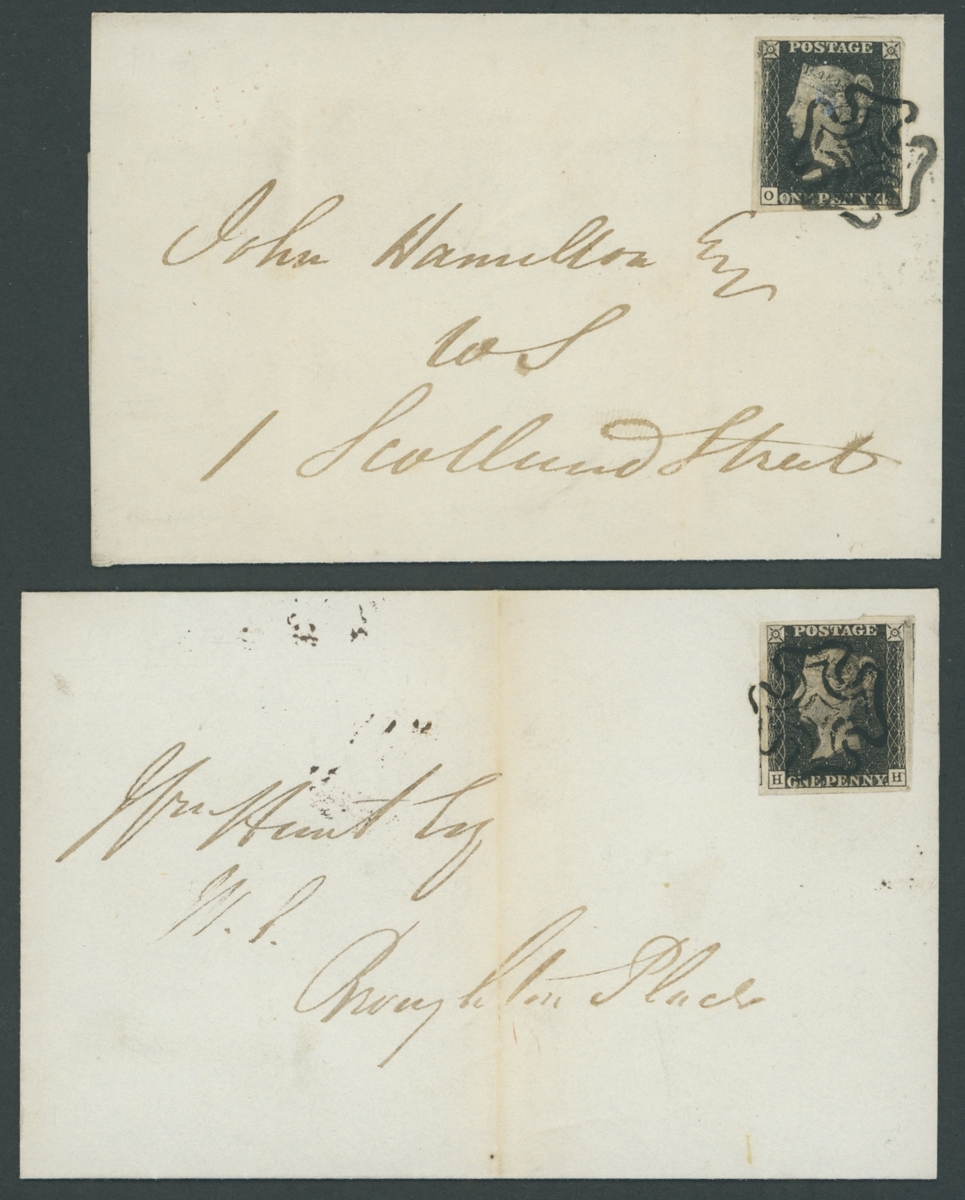 POSTAGE
O ONE PENNY
John Hamilton Esq
WS
1 Scotland Street
POSTAGE
H ONE PENNY H
Wm Hunt Esq
W. S.
Broughton Place